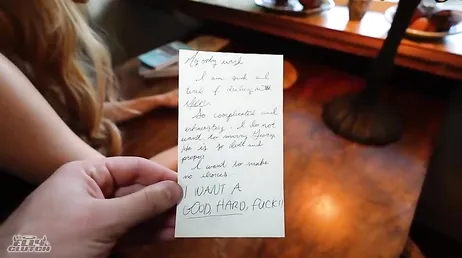 My only wish
I am sick and
tired of dealing with
So complicated and
exhausting. I do not
want to marry
He is so dull and
proper
I want to make
no choices
I WANT A
GOOD, HARD, FUCK!!
CLUTCH